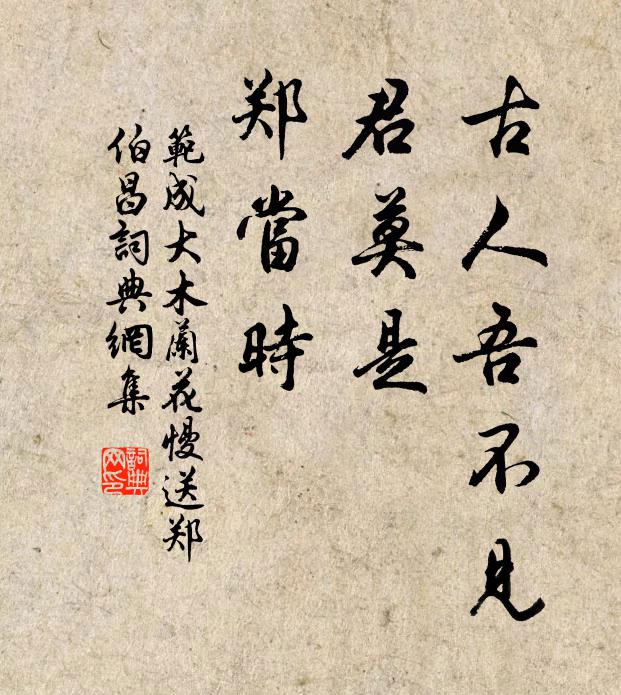 古人吾不见
君莫是
郑當時
範成大木蘭花慢送郑
伯昌詞典網集
詞典
网印